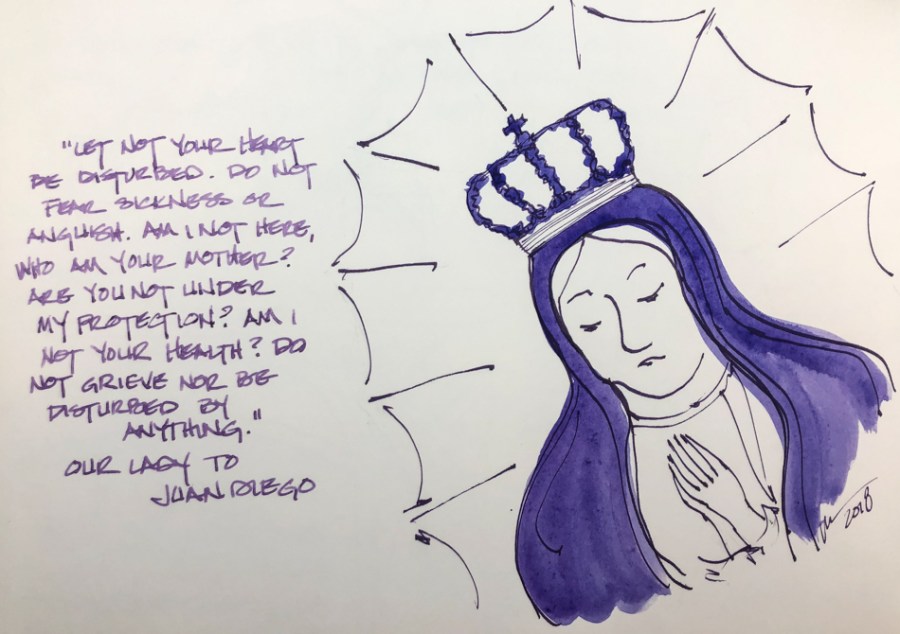 "LET NOT YOUR HEART
BE DISTURBED. DO NOT
FEAR SICKNESS OR
ANGUISH. AM I NOT HERE,
WHO AM YOUR MOTHER?
ARE YOU NOT UNDER
MY PROTECTION? AM I
NOT YOUR HEALTH? DO
NOT GRIEVE NOR BE
DISTURBED BY
ANYTHING."
OUR LADY TO
JUAN DIEGO
2018